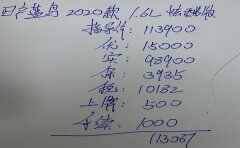 日产蓝鸟 2020款 1.6L 炫酷版
指导价：113900
优：15000
实：98900
保：3935
税：10182
上牌：500
手续：1000
113087